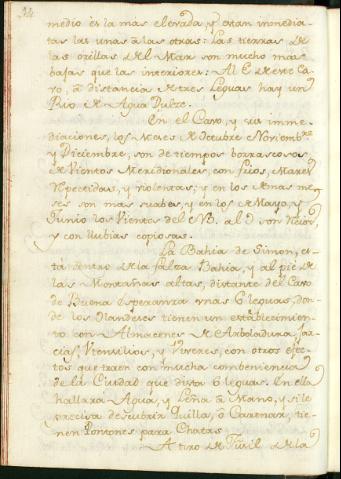 medio es la mas elevada, y estan inmedia-
tas las unas a las otras: Las tierras de
las orillas del Mar son mucho mas
bajas que las interiores: Al E de este Ca-
vo, a distancia de tres Leguas hay un
Rio de Agua Dulze.
En el Cavo, y sus imme-
diaciones, los Meses de Octubre Noviembre
y Diciembre, son de tiempos borrascosos
de Vientos Meridionales, con frios, Mares
y violentas; y en los demas me-
ses son mas suabes, y en los de Mayo, y
Junio los Vientos del NO. al O son
y con llubias copiosas.
La Bahia de Simon, es-
tá dentro de la falza Bahia, y al pie de
las Montañas altas, distante del Cavo
de Buena Esperanza unas 6 leguas, don-
de los Olandeses tienen un establecimien-
to con Almacenes de Arboladura, Jar-
cias, Utensilios, y Viveres, con otros efec-
tos que traen con mucha combeniencia
de la Ciudad que dista 6 leguas. En ella
hallara Agua, y Leña a Mano, y si le
precisa descubrir Quilla, o Carenar, tie-
nen Pontones para Chatas.
A tiro de Fusil de la